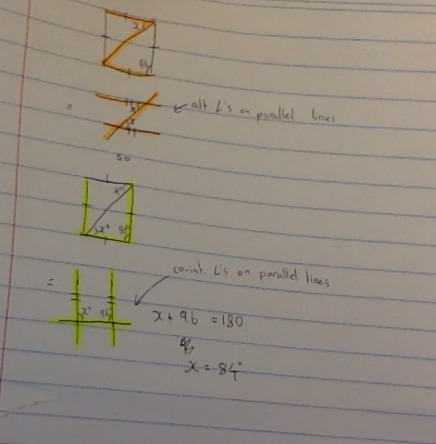 x°
96
= alt. L's on parallel lines
so
x°
x° 96
co-int. L's on parallel lines
= x° 96
x + 96 = 180
x = 84°